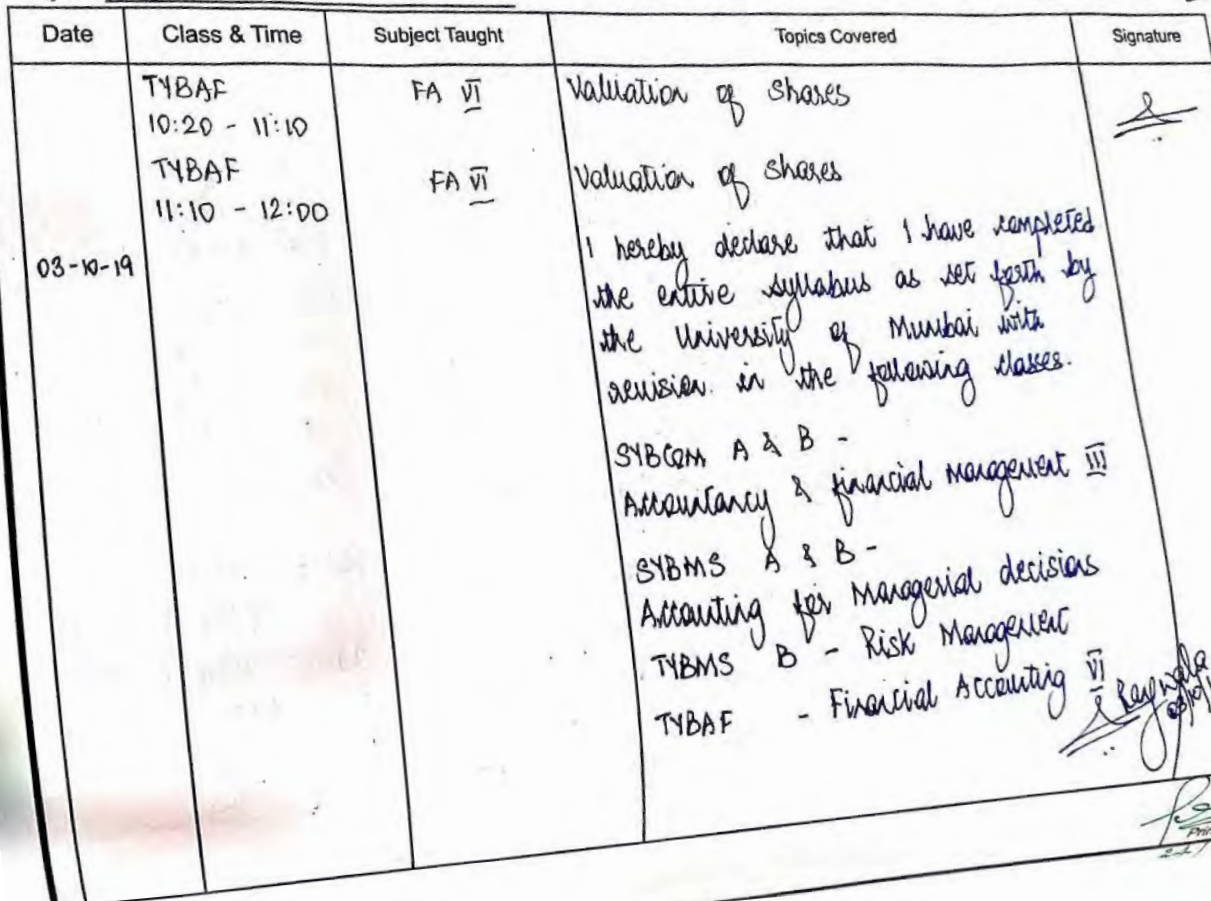 Date Class & Time Subject Taught Topics Covered Signature
TYBAF FA VI Valuation of Shares
10:20 - 11:10
TYBAF FA VI Valuation of Shares
11:10 - 12:00
03-10-19
I hereby declare that I have completed
the entire syllabus as set forth by
the University of Mumbai with
revision. in the following classes.
SYBCOM A & B -
Accountancy & financial management III
SYBMS A & B -
Accounting for Managerial decisions
TYBMS B - Risk Management
TYBAF - Financial Accounting VI